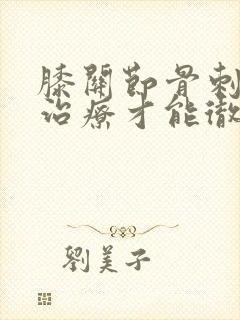 膝關節骨刺
治療才能徹
劉美子